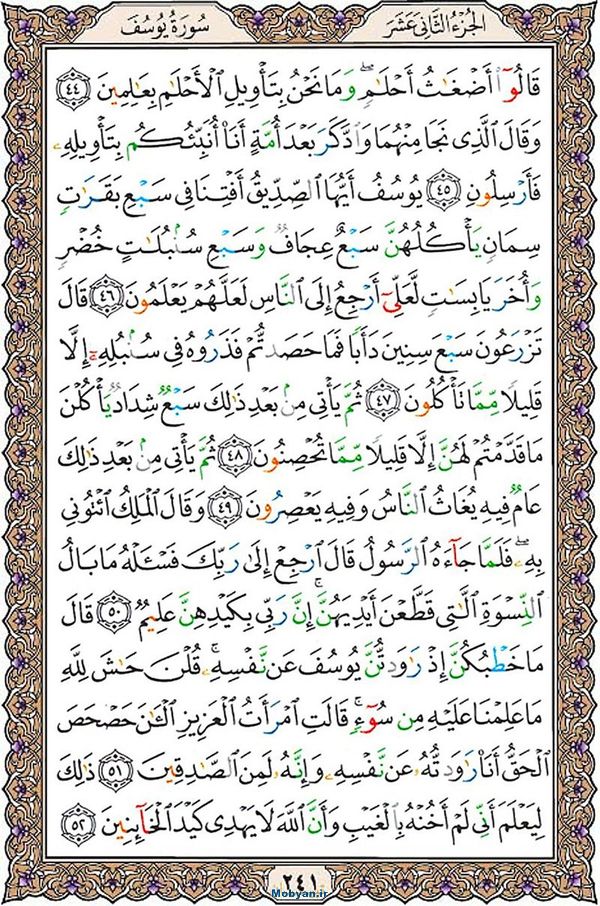 الجزء الثانی عشر
سورة يوسف
قَالُوٓا۟ أَضْغَـٰثُ أَحْلَـٰمٍۢ ۖ وَمَا نَحْنُ بِتَأْوِيلِ ٱلْأَحْلَـٰمِ بِعَـٰلِمِينَ ٤٤
وَقَالَ ٱلَّذِى نَجَا مِنْهُمَا وَٱدَّكَرَ بَعْدَ أُمَّةٍ أَنَا۠ أُنَبِّئُكُم بِتَأْوِيلِهِۦ
فَأَرْسِلُونِ ٤٥ يُوسُفُ أَيُّهَا ٱلصِّدِّيقُ أَفْتِنَا فِى سَبْعِ بَقَرَٰتٍۢ
سِمَانٍۢ يَأْكُلُهُنَّ سَبْعٌ عِجَافٌۭ وَسَبْعِ سُنۢبُلَـٰتٍ خُضْرٍۢ
وَأُخَرَ يَابِسَـٰتٍۢ لَّعَلِّىٓ أَرْجِعُ إِلَى ٱلنَّاسِ لَعَلَّهُمْ يَعْلَمُونَ ٤٦ قَالَ
تَزْرَعُونَ سَبْعَ سِنِينَ دَأَبًۭا فَمَا حَصَدتُّمْ فَذَرُوهُ فِى سُنۢبُلِهِۦٓ إِلَّا
قَلِيلًۭا مِّمَّا تَأْكُلُونَ ٤٧ ثُمَّ يَأْتِى مِنۢ بَعْدِ ذَٰلِكَ سَبْعٌۭ شِدَادٌۭ يَأْكُلْنَ
مَا قَدَّمْتُمْ لَهُنَّ إِلَّا قَلِيلًۭا مِّمَّا تُحْصِنُونَ ٤٨ ثُمَّ يَأْتِى مِنۢ بَعْدِ ذَٰلِكَ
عَامٌۭ فِيهِ يُغَاثُ ٱلنَّاسُ وَفِيهِ يَعْصِرُونَ ٤٩ وَقَالَ ٱلْمَلِكُ ٱئْتُونِى
بِهِۦ ۖ فَلَمَّا جَآءَهُ ٱلرَّسُولُ قَالَ ٱرْجِعْ إِلَىٰ رَبِّكَ فَسْـَٔلْهُ مَا بَالُ
ٱلنِّسْوَةِ ٱلَّـٰتِى قَطَّعْنَ أَيْدِيَهُنَّ ۚ إِنَّ رَبِّى بِكَيْدِهِنَّ عَلِيمٌۭ ٥٠ قَالَ
مَا خَطْبُكُنَّ إِذْ رَٰوَدتُّنَّ يُوسُفَ عَن نَّفْسِهِۦ ۚ قُلْنَ حَـٰشَ لِلَّهِ
مَا عَلِمْنَا عَلَيْهِ مِن سُوٓءٍۢ ۚ قَالَتِ ٱمْرَأَتُ ٱلْعَزِيزِ ٱلْـَٔـٰنَ حَصْحَصَ
ٱلْحَقُّ أَنَا۠ رَٰوَدتُّهُۥ عَن نَّفْسِهِۦ وَإِنَّهُۥ لَمِنَ ٱلصَّـٰدِقِينَ ٥١ ذَٰلِكَ
لِيَعْلَمَ أَنِّى لَمْ أَخُنْهُ بِٱلْغَيْبِ وَأَنَّ ٱللَّهَ لَا يَهْدِى كَيْدَ ٱلْخَآئِنِينَ ٥٢
٢٤١
Mobyan.ir